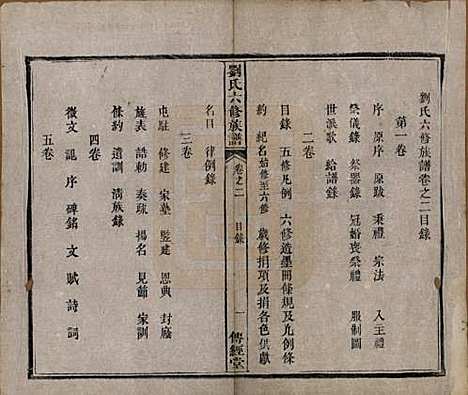 劉氏六修族譜卷之二目錄
第一卷
序 原序 原跋 秉禮 宗法 入主禮
祭儀錄 祭器錄 冠婚喪祭禮 服制圖
世派歌 給譜錄
二卷
目錄 五修凡例 六修造墨開條規及九例條
約 紀名始修至六修 歲修捐項及捐各色供獻
劉氏六修族譜
卷之二 目錄
一
傳經堂
名目 律例錄
三卷
屯駐 修建 家塾 監建 恩典 封廕
旌表 誥勅 奏疏 揚名 見節 家訓
條約 遺訓 清族錄
四卷
徵文 記 序 碑銘 文 賦 詩 詞
五卷